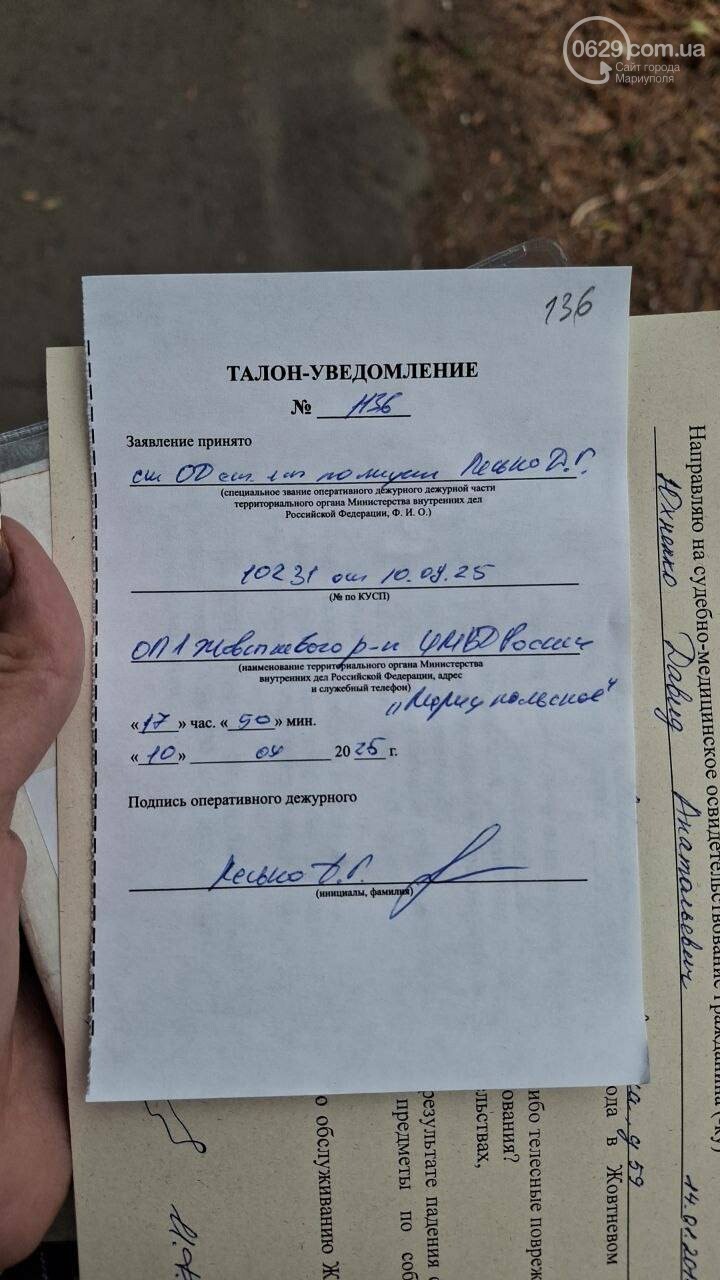 0629.com.ua
Сайт города
Мариуполя
136
ТАЛОН-УВЕДОМЛЕНИЕ
№ 1136
Заявление принято
полиции Лесько Д.Г.
(специальное звание оперативного дежурного дежурной части
территориального органа Министерства внутренних дел
Российской Федерации, Ф. И. О.)
10231 от 10.09.25
(№ по КУСП)
ОП 1 Жовтневого р-н УМВД России
(наименование территориального органа Министерства
внутренних дел Российской Федерации, адрес
и служебный телефон)
"Мариупольское"
«17» час. «50» мин.
«10» 09 2025 г.
Подпись оперативного дежурного
Лесько Д.Г.
(инициалы, фамилия)
Направляю на судебно-медицинское освидетельствование гражданина (-ку)
Юхненко Давид Анатольевич
14.01.20
д 59
ода в Жовтневом
ибо телесные повреж
ования?
ельствах,
результате падения с
предметы по соб
о обслуживанию Ж